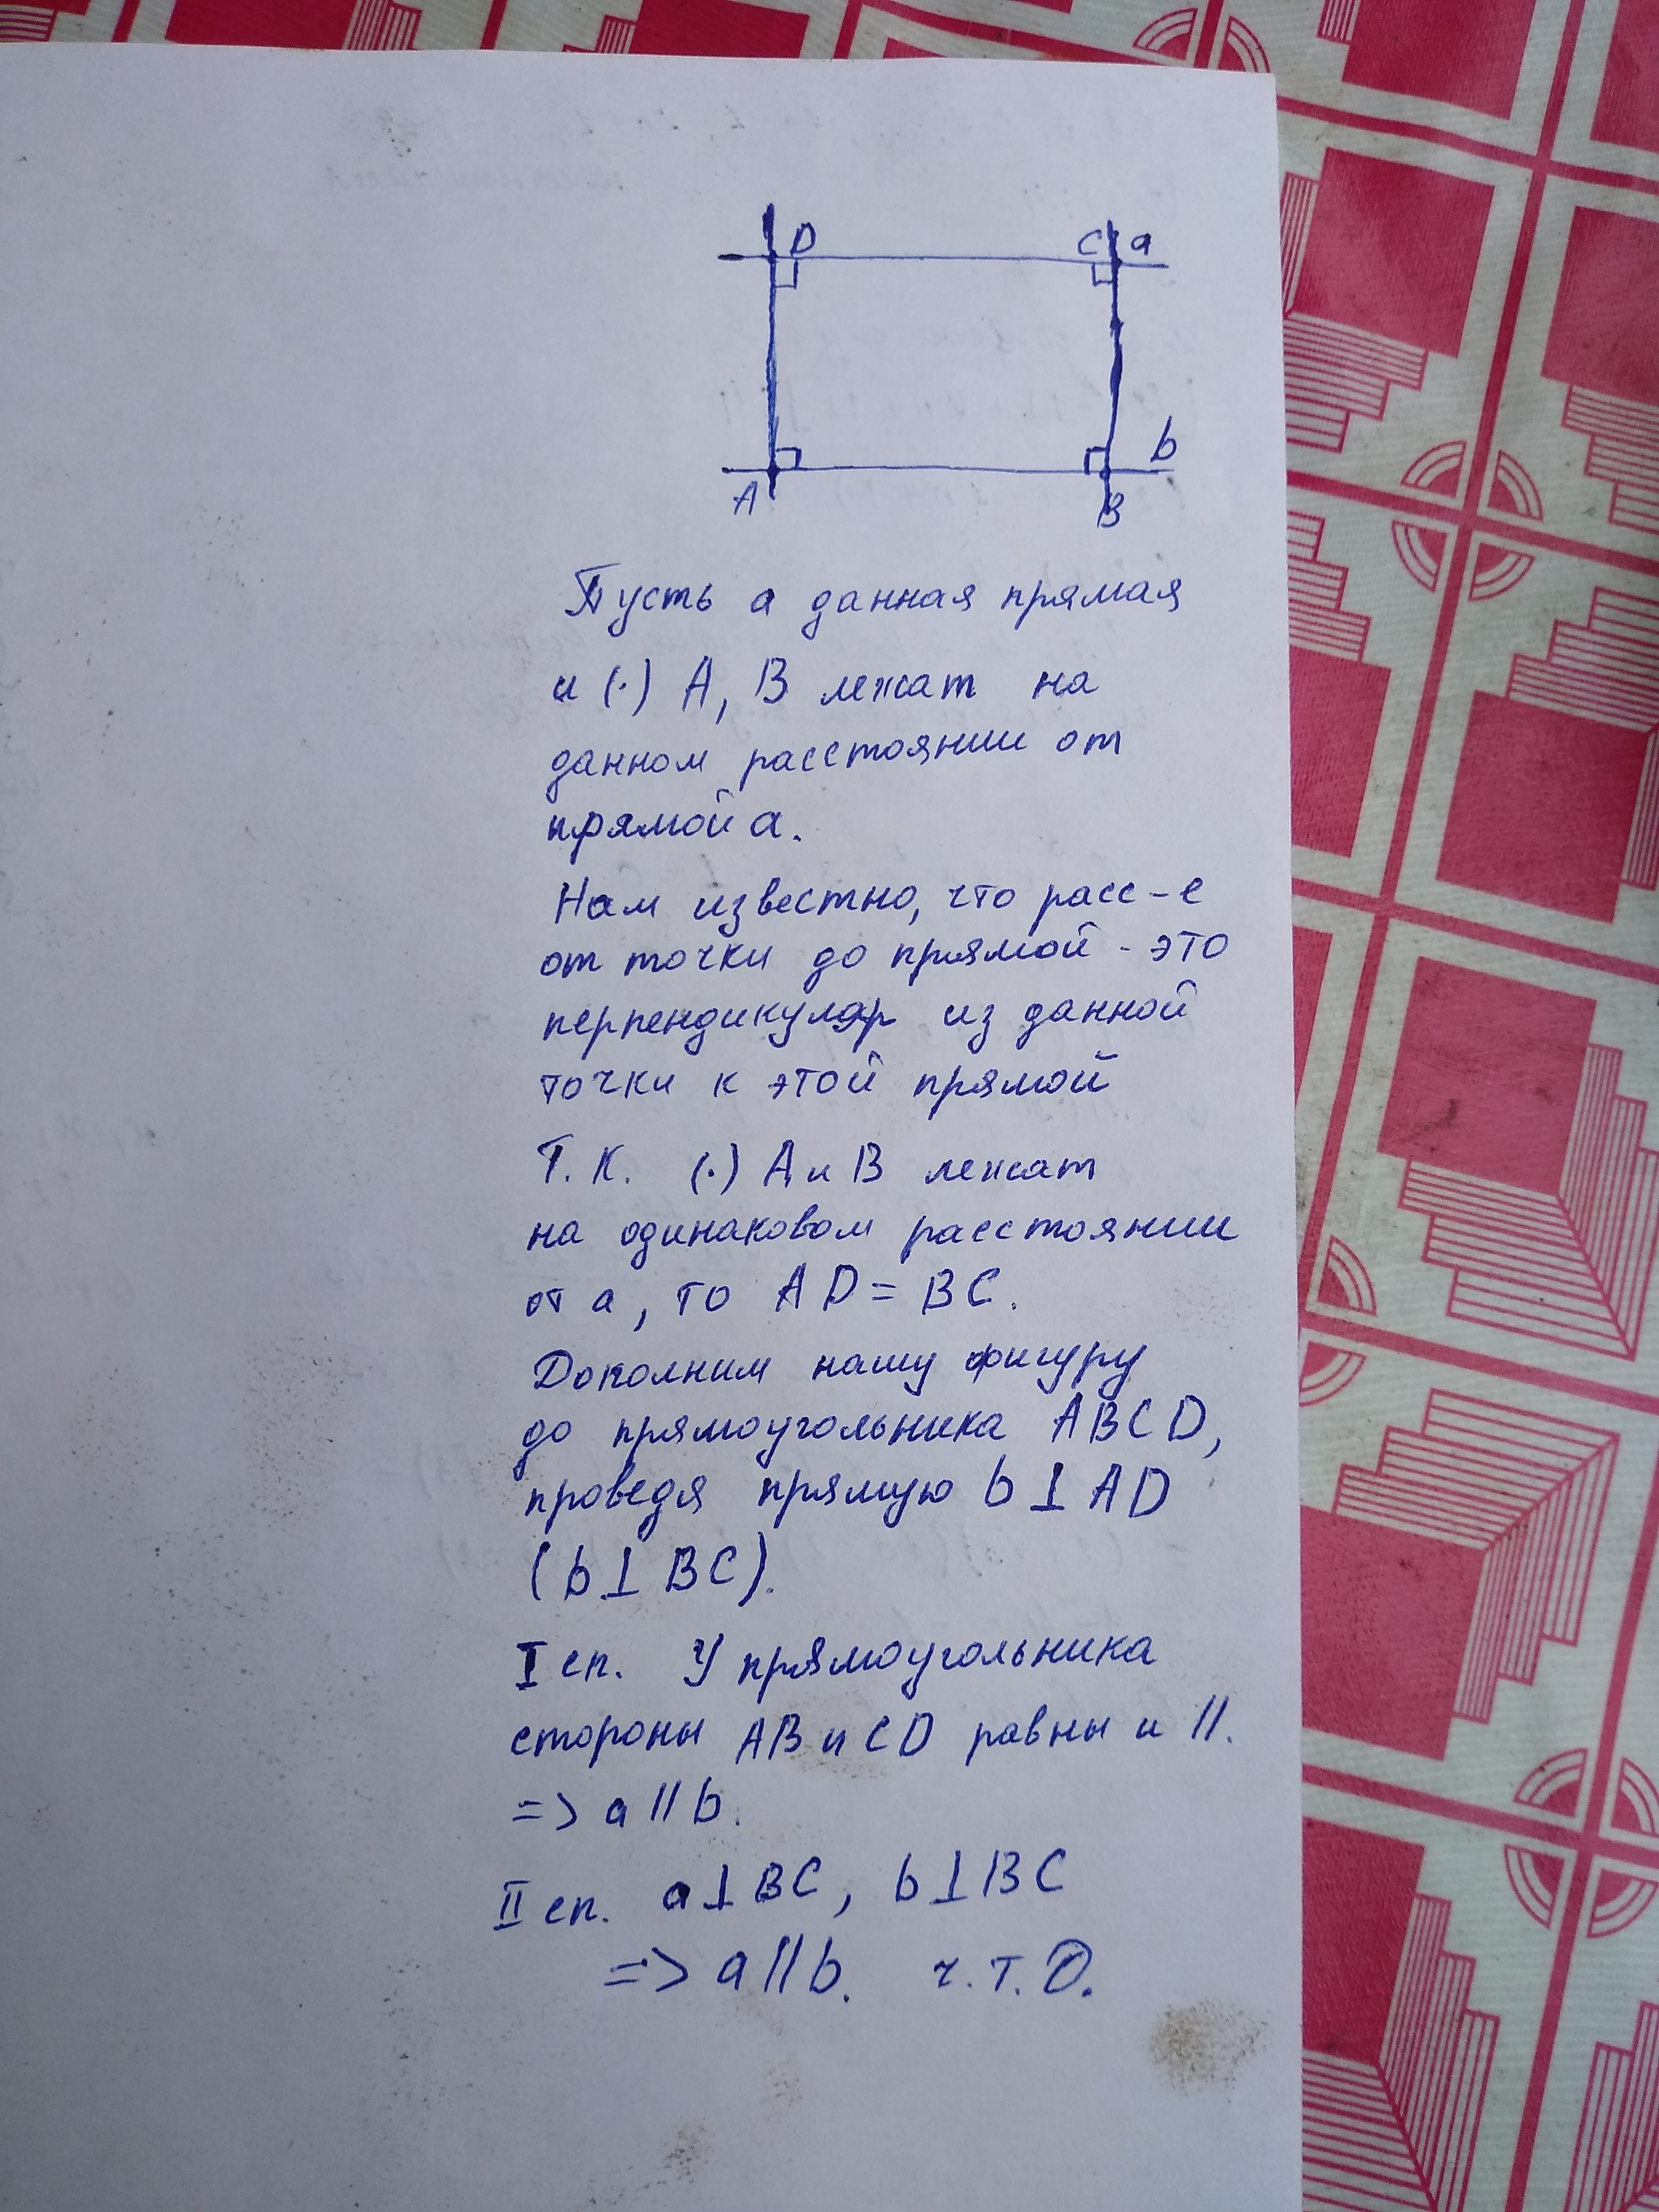 D C a
b
A B
Пусть а данная прямая
и (·) А, В лежат на
данном расстоянии от
прямой а.
Нам известно, что расс-е
от точки до прямой - это
перпендикуляр из данной
точки к этой прямой
Т.К. (·) А и В лежат
на одинаковом расстоянии
от а, то AD = BC.
Дополним нашу фигуру
до прямоугольника ABCD,
проведя прямую b ⊥ AD
(b ⊥ BC).
I сп. У прямоугольника
стороны AB и CD равны и ||.
=> a || b.
II сп. a ⊥ BC, b ⊥ BC
=> a || b. ч.т.д.